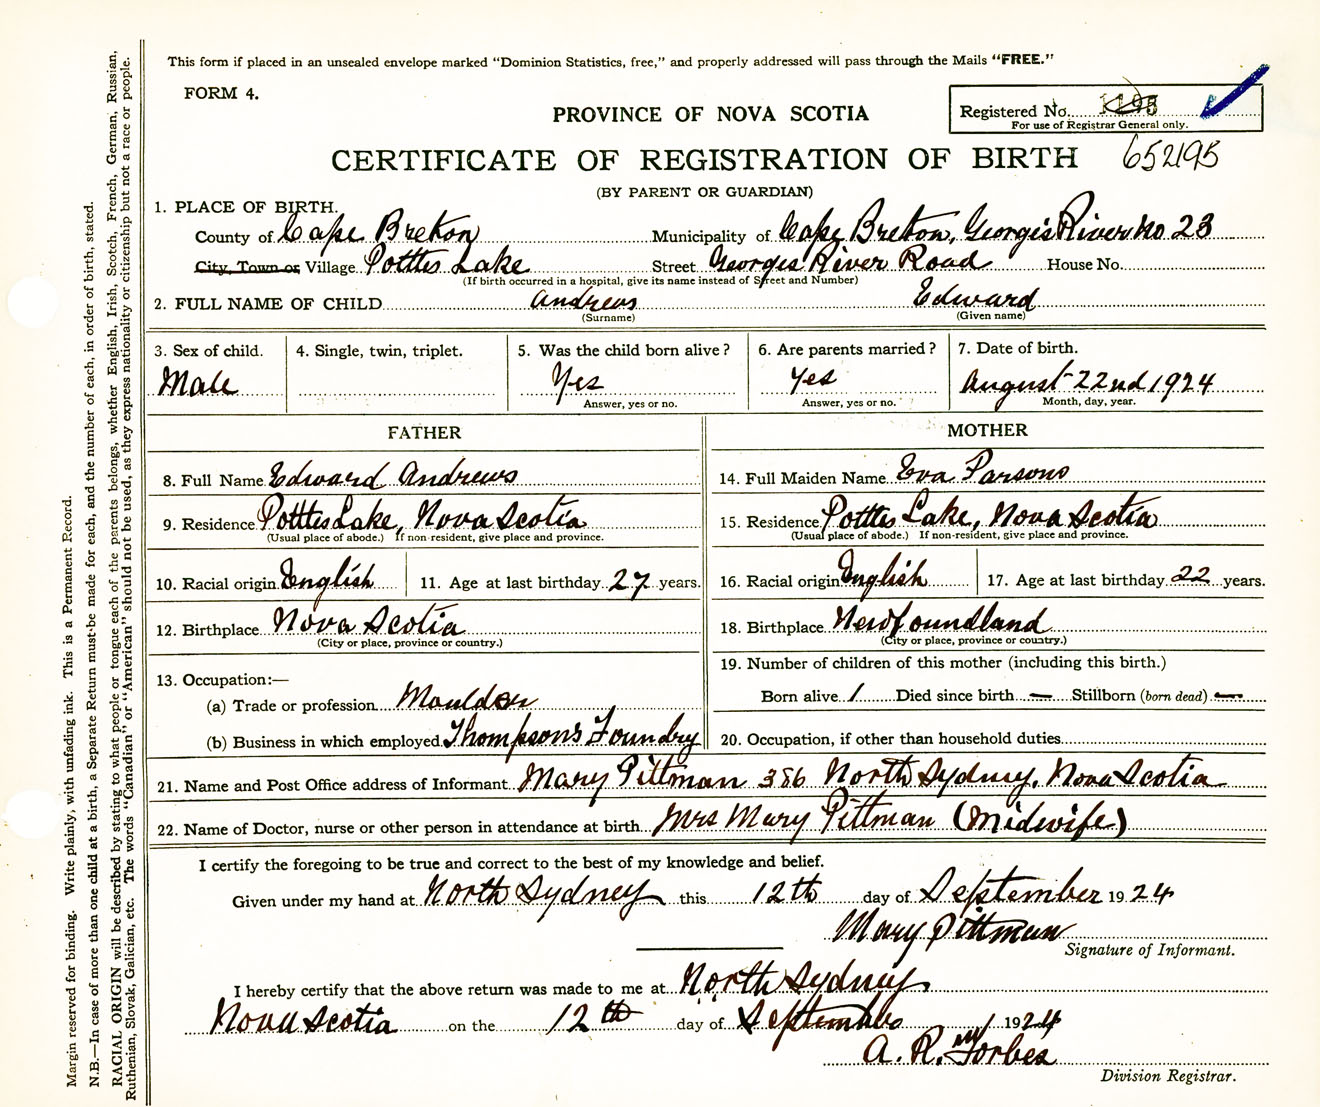 This form if placed in an unsealed envelope marked "Dominion Statistics, free," and properly addressed will pass through the Mails "FREE."
FORM 4.
PROVINCE OF NOVA SCOTIA
Registered No. 1195
For use of Registrar General only.
CERTIFICATE OF REGISTRATION OF BIRTH 652195
(BY PARENT OR GUARDIAN)
1. PLACE OF BIRTH.
County of Cape Breton Municipality of Cape Breton, Georges River No 23
City, Town or Village Pottles Lake Street Georges River Road House No.
(If birth occurred in a hospital, give its name instead of Street and Number)
2. FULL NAME OF CHILD Andrews Edward
(Surname) (Given name)
3. Sex of child. 4. Single, twin, triplet. 5. Was the child born alive? 6. Are parents married? 7. Date of birth.
Male Yes Yes August 22nd 1924
Answer, yes or no. Answer, yes or no. Month, day, year.
FATHER MOTHER
8. Full Name Edward Andrews 14. Full Maiden Name Eva Parsons
9. Residence Pottles Lake, Nova Scotia 15. Residence Pottles Lake, Nova Scotia
(Usual place of abode.) If non-resident, give place and province. (Usual place of abode.) If non-resident, give place and province.
10. Racial origin English 11. Age at last birthday 27 years. 16. Racial origin English 17. Age at last birthday 22 years.
12. Birthplace Nova Scotia 18. Birthplace Newfoundland
(City or place, province or country.) (City or place, province or country.)
13. Occupation:— 19. Number of children of this mother (including this birth.)
(a) Trade or profession Moulder Born alive 1 Died since birth — Stillborn (born dead) —
(b) Business in which employed Thompsons Foundry 20. Occupation, if other than household duties
21. Name and Post Office address of Informant Mary Pittman 386 North Sydney, Nova Scotia
22. Name of Doctor, nurse or other person in attendance at birth Mrs Mary Pittman (Midwife)
I certify the foregoing to be true and correct to the best of my knowledge and belief.
Given under my hand at North Sydney this 12th day of September 1924
Mary Pittman
Signature of Informant.
I hereby certify that the above return was made to me at North Sydney
Nova Scotia on the 12th day of September 1924
A. R. Forbes
Division Registrar.
Margin reserved for binding. Write plainly, with unfading ink. This is a Permanent Record.
N.B.—In case of more than one child at a birth, a Separate Return must be made for each, and the number of each, in order of birth, stated.
RACIAL ORIGIN will be described by stating to what people or tongue each of the parents belongs, whether English, Irish, Scotch, French, German, Russian,
Ruthenian, Slovak, Galician, etc. The words "Canadian" or "American" should not be used, as they express nationality or citizenship but not a race or people.